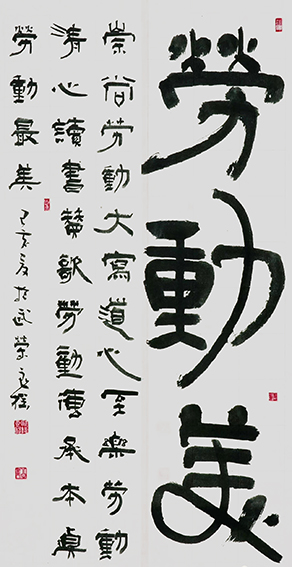 勞動美
崇尚勞動大寫道心至樂勞動
清心讀書贊歌勞動傳承本真
勞動最美
己亥夏於武榮